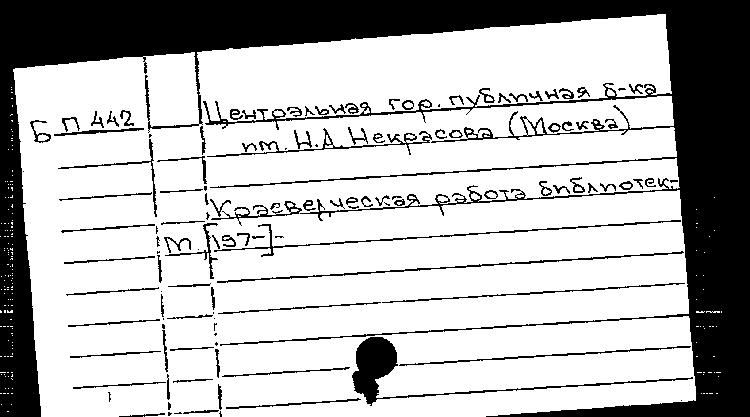 Б П 442
Центральная гор. публичная б-ка
им. Н.А. Некрасова (Москва)
Краеведческая работа библиотек.-
М., [197-]-